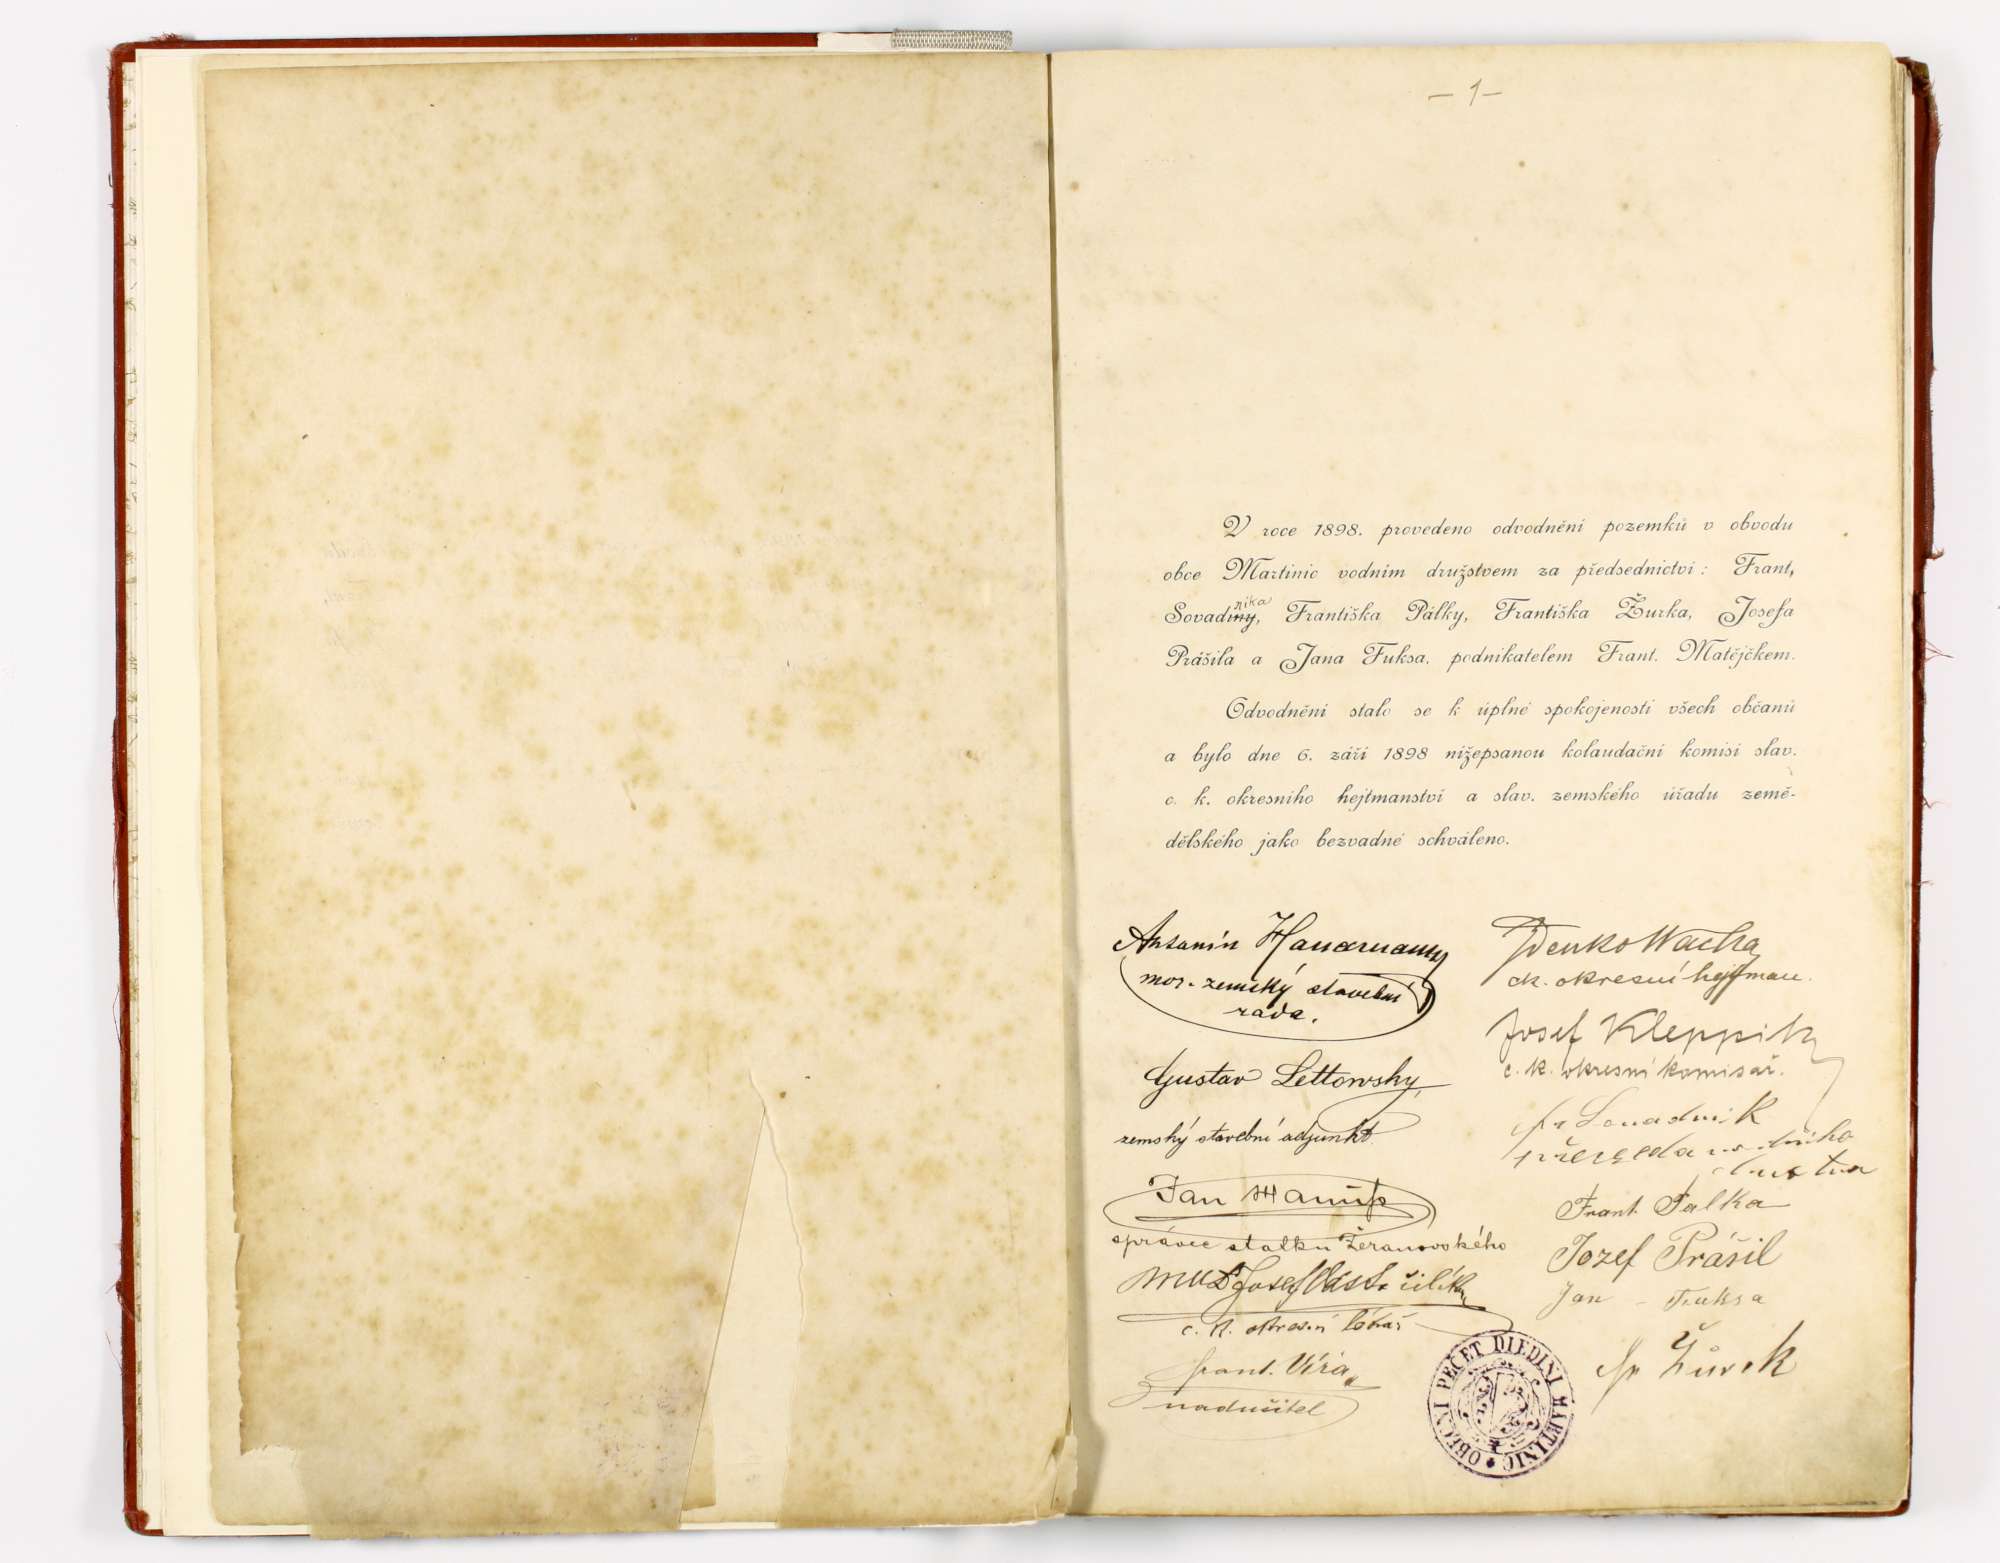 – 1 –
V roce 1898. provedeno odvodnění pozemků v obvodu
obce Martinic vodním družstvem za předsednictví: Frant.
Sovadiny, Františka Pálky, Františka Žurka, Josefa
nika
Prášila a Jana Fuksa, podnikatelem Frant. Matějčkem.
Odvodnění stalo se k úplné spokojenosti všech občanů
a bylo dne 6. září 1898 nížepsanou kolaudační komisí slav.
c. k. okresního hejtmanství a slav. zemského úřadu země-
dělského jako bezvadné schváleno.
Antonín
mor. zemský stavební
rada.
Gustav Lettowsky
zemský stavební adjunkt.
Jan Hanuš
správce statku Žeranovského
MUDr Josef
c. k. okresní lékař
Frant. Víra
nadučitel
Zdenko Wacha
ck. okresní hejtman.
Josef Kleppik
c. k. okresní komisař.
Fr Sovadnik
předseda vodního
družstva
Frant. Palka
Jozef Prášil
Jan Fuksa
Fr Žůrek
OBECNI PEČET DIEDINI MARTINIC